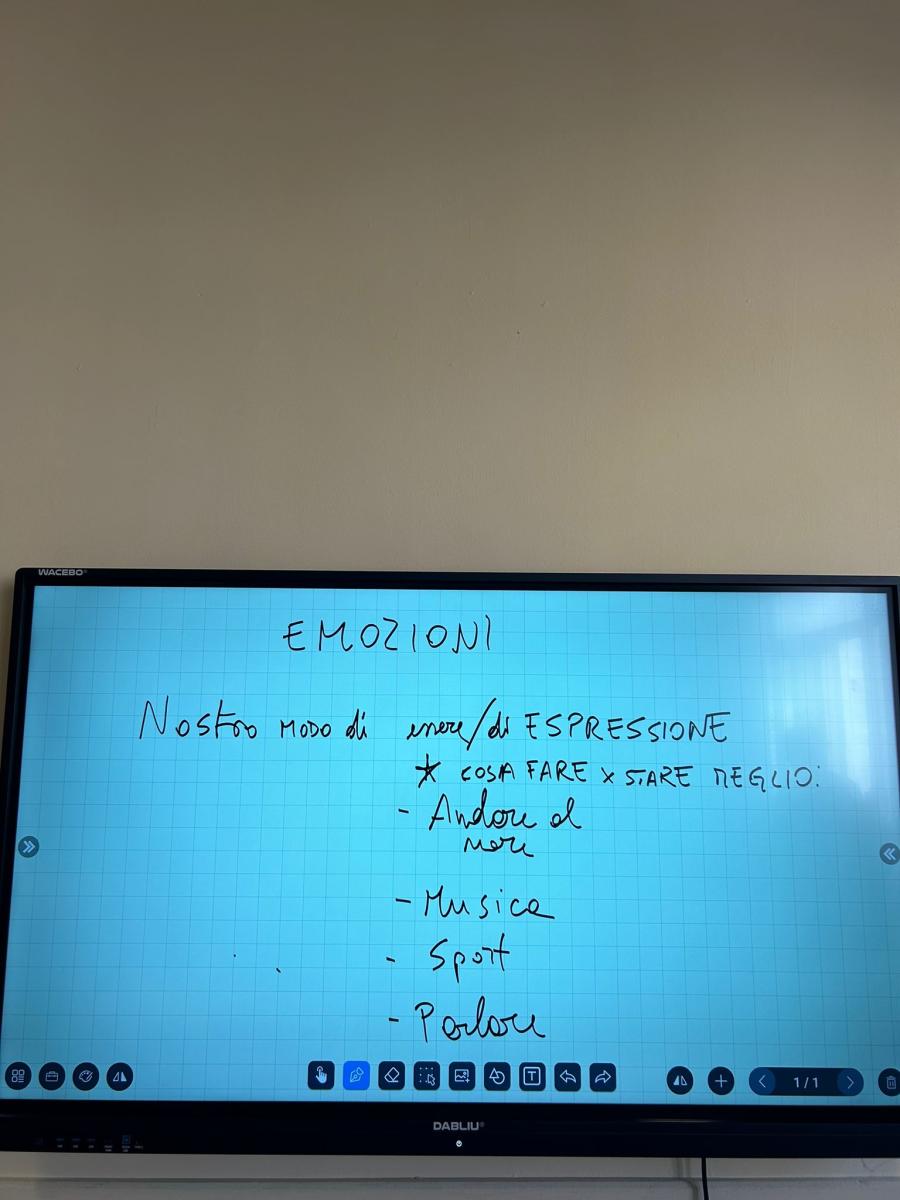 WACEBO
EMOZIONI
Nostro MODO di essere/di ESPRESSIONE
* COSA FARE x STARE MEGLIO:
- Andare al
mare
- Musica
- Sport
- Parlare
T
1/1
DABLIU